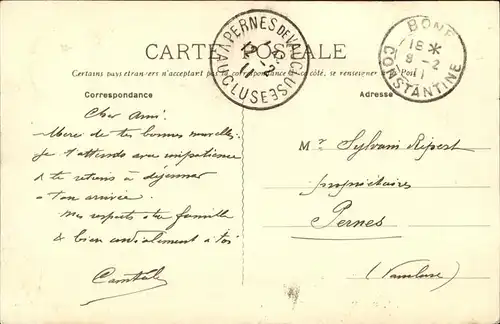 CARTE POSTALE
PERNES DE VAUCLUSE
VAUCLUSE
11-2
BÔNE
18 *
8 -2
11
CONSTANTINE
Certains pays étrangers n'acceptant pas la correspondance de ce côté, se renseigner à la Poste
Correspondance
Adresse
Cher Ami.
Merci de tes bonnes nouvelles.
Je t'attends avec impatience
& te retiens à déjeuner
a ton arrivée.
Mes respects à ta famille
& bien cordialement à toi
Mr Sylvain Ripert
propriétaire
Pernes
(Vaucluse)